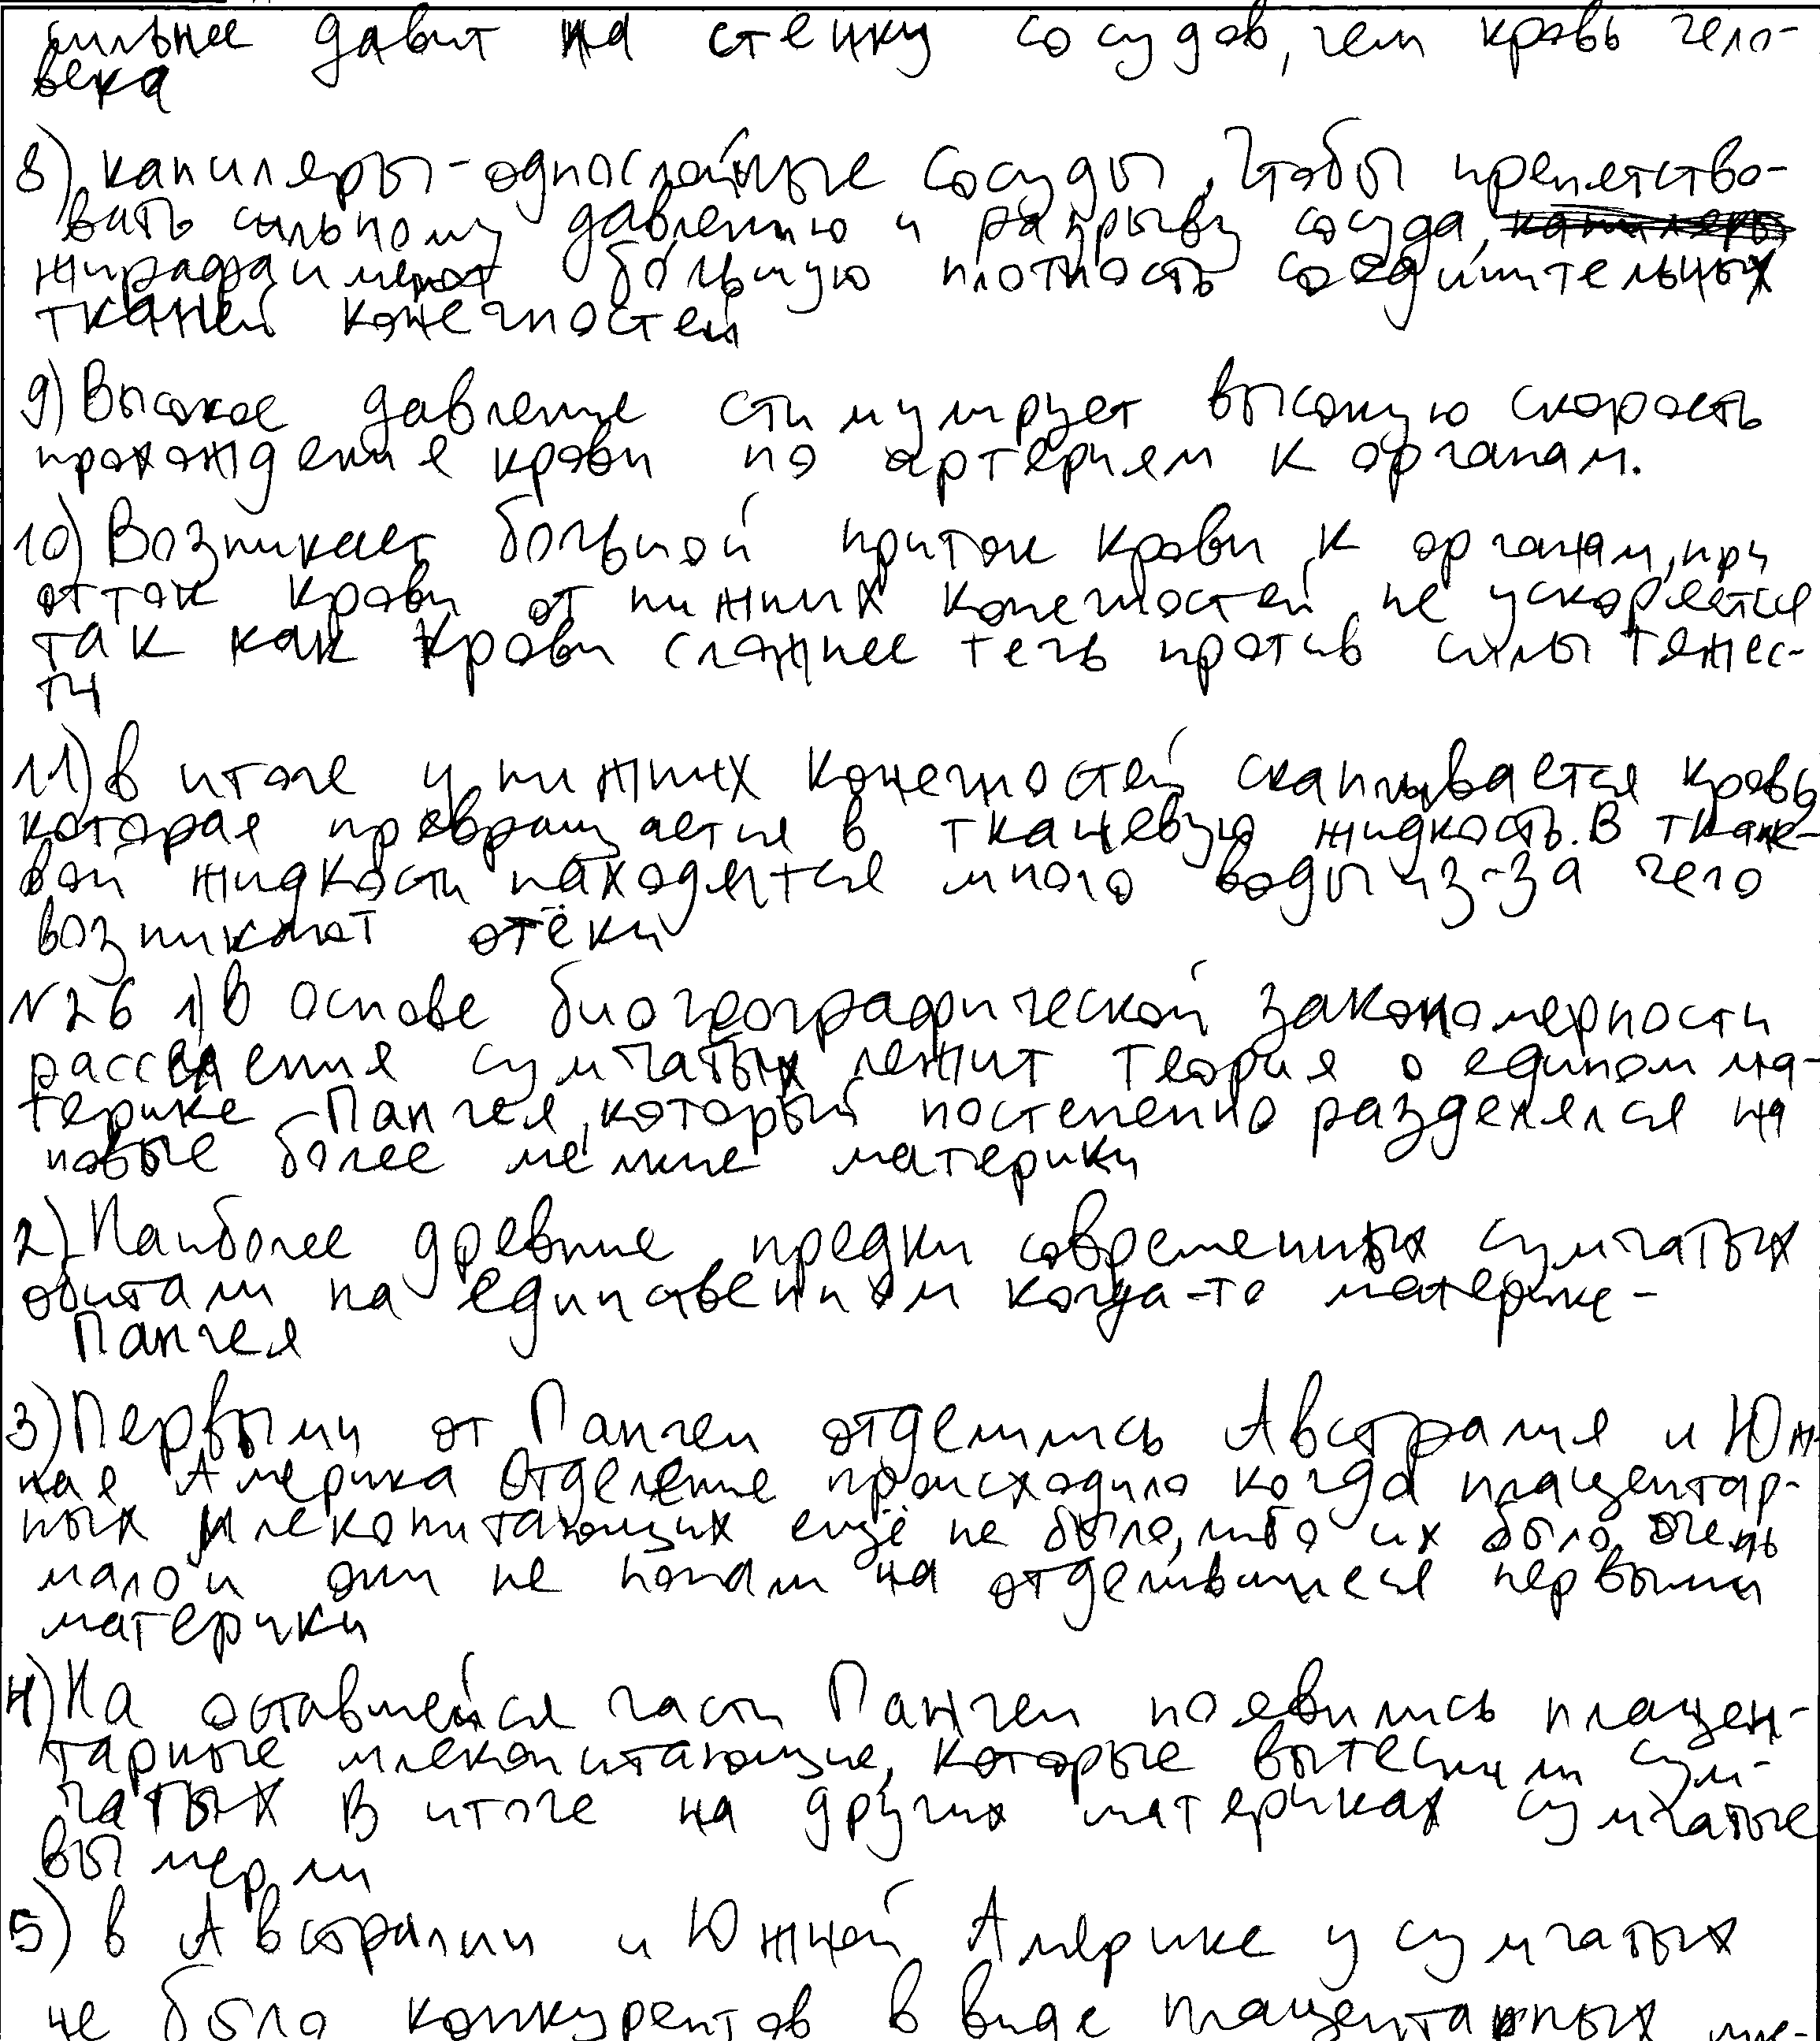 сильнее давит на стенку сосудов, чем кровь чело-
века
8) капиляры - однослойные сосуды, чтобы препетство-
вать сильному давлению и разрыву сосуда,
жирафа имеют большую плотность соединительных
тканей конечностей
9) Высокое давление стимулирует высокую скорость
прохождение крови по артериям к органам.
10) Возникает большой приток крови к органам, при
отток крови от нижних конечностей не ускоряется
так как крови сложнее течь против силы тяжес-
ти
11) В итоге у нижних конечностей скапливается кровь
которая превращается в тканевую жидкость. В ткане-
вой жидкости находятся много воды из-за чего
возникают отёки
№26 1) В основе биогеографической закономерности
расселения сумчатых лежит теория о едином ма-
терике - Пангея, который постепенно разделялся на
новые более мелкие материки
2) Наиболее древние предки современных сумчатых
обитали на единственном когда-то материке -
Пангея
3) Первыми от Пангеи отделились Австралия и Юж-
ная Америка Отделение происходило когда плацентар-
ных млекопитающих ещё не было, либо их было очень
мало и они не попали на отделившиеся первыми
материки
4) На оставшейся части Пангеи появились плацен-
тарные млекопитающие, которые вытеснили сум-
чатых В итоге на других материках сумчатые
вымерли
5) В Австралии и Южной Америке у сумчатых
не было конкурентов в виде плацентарных мле-